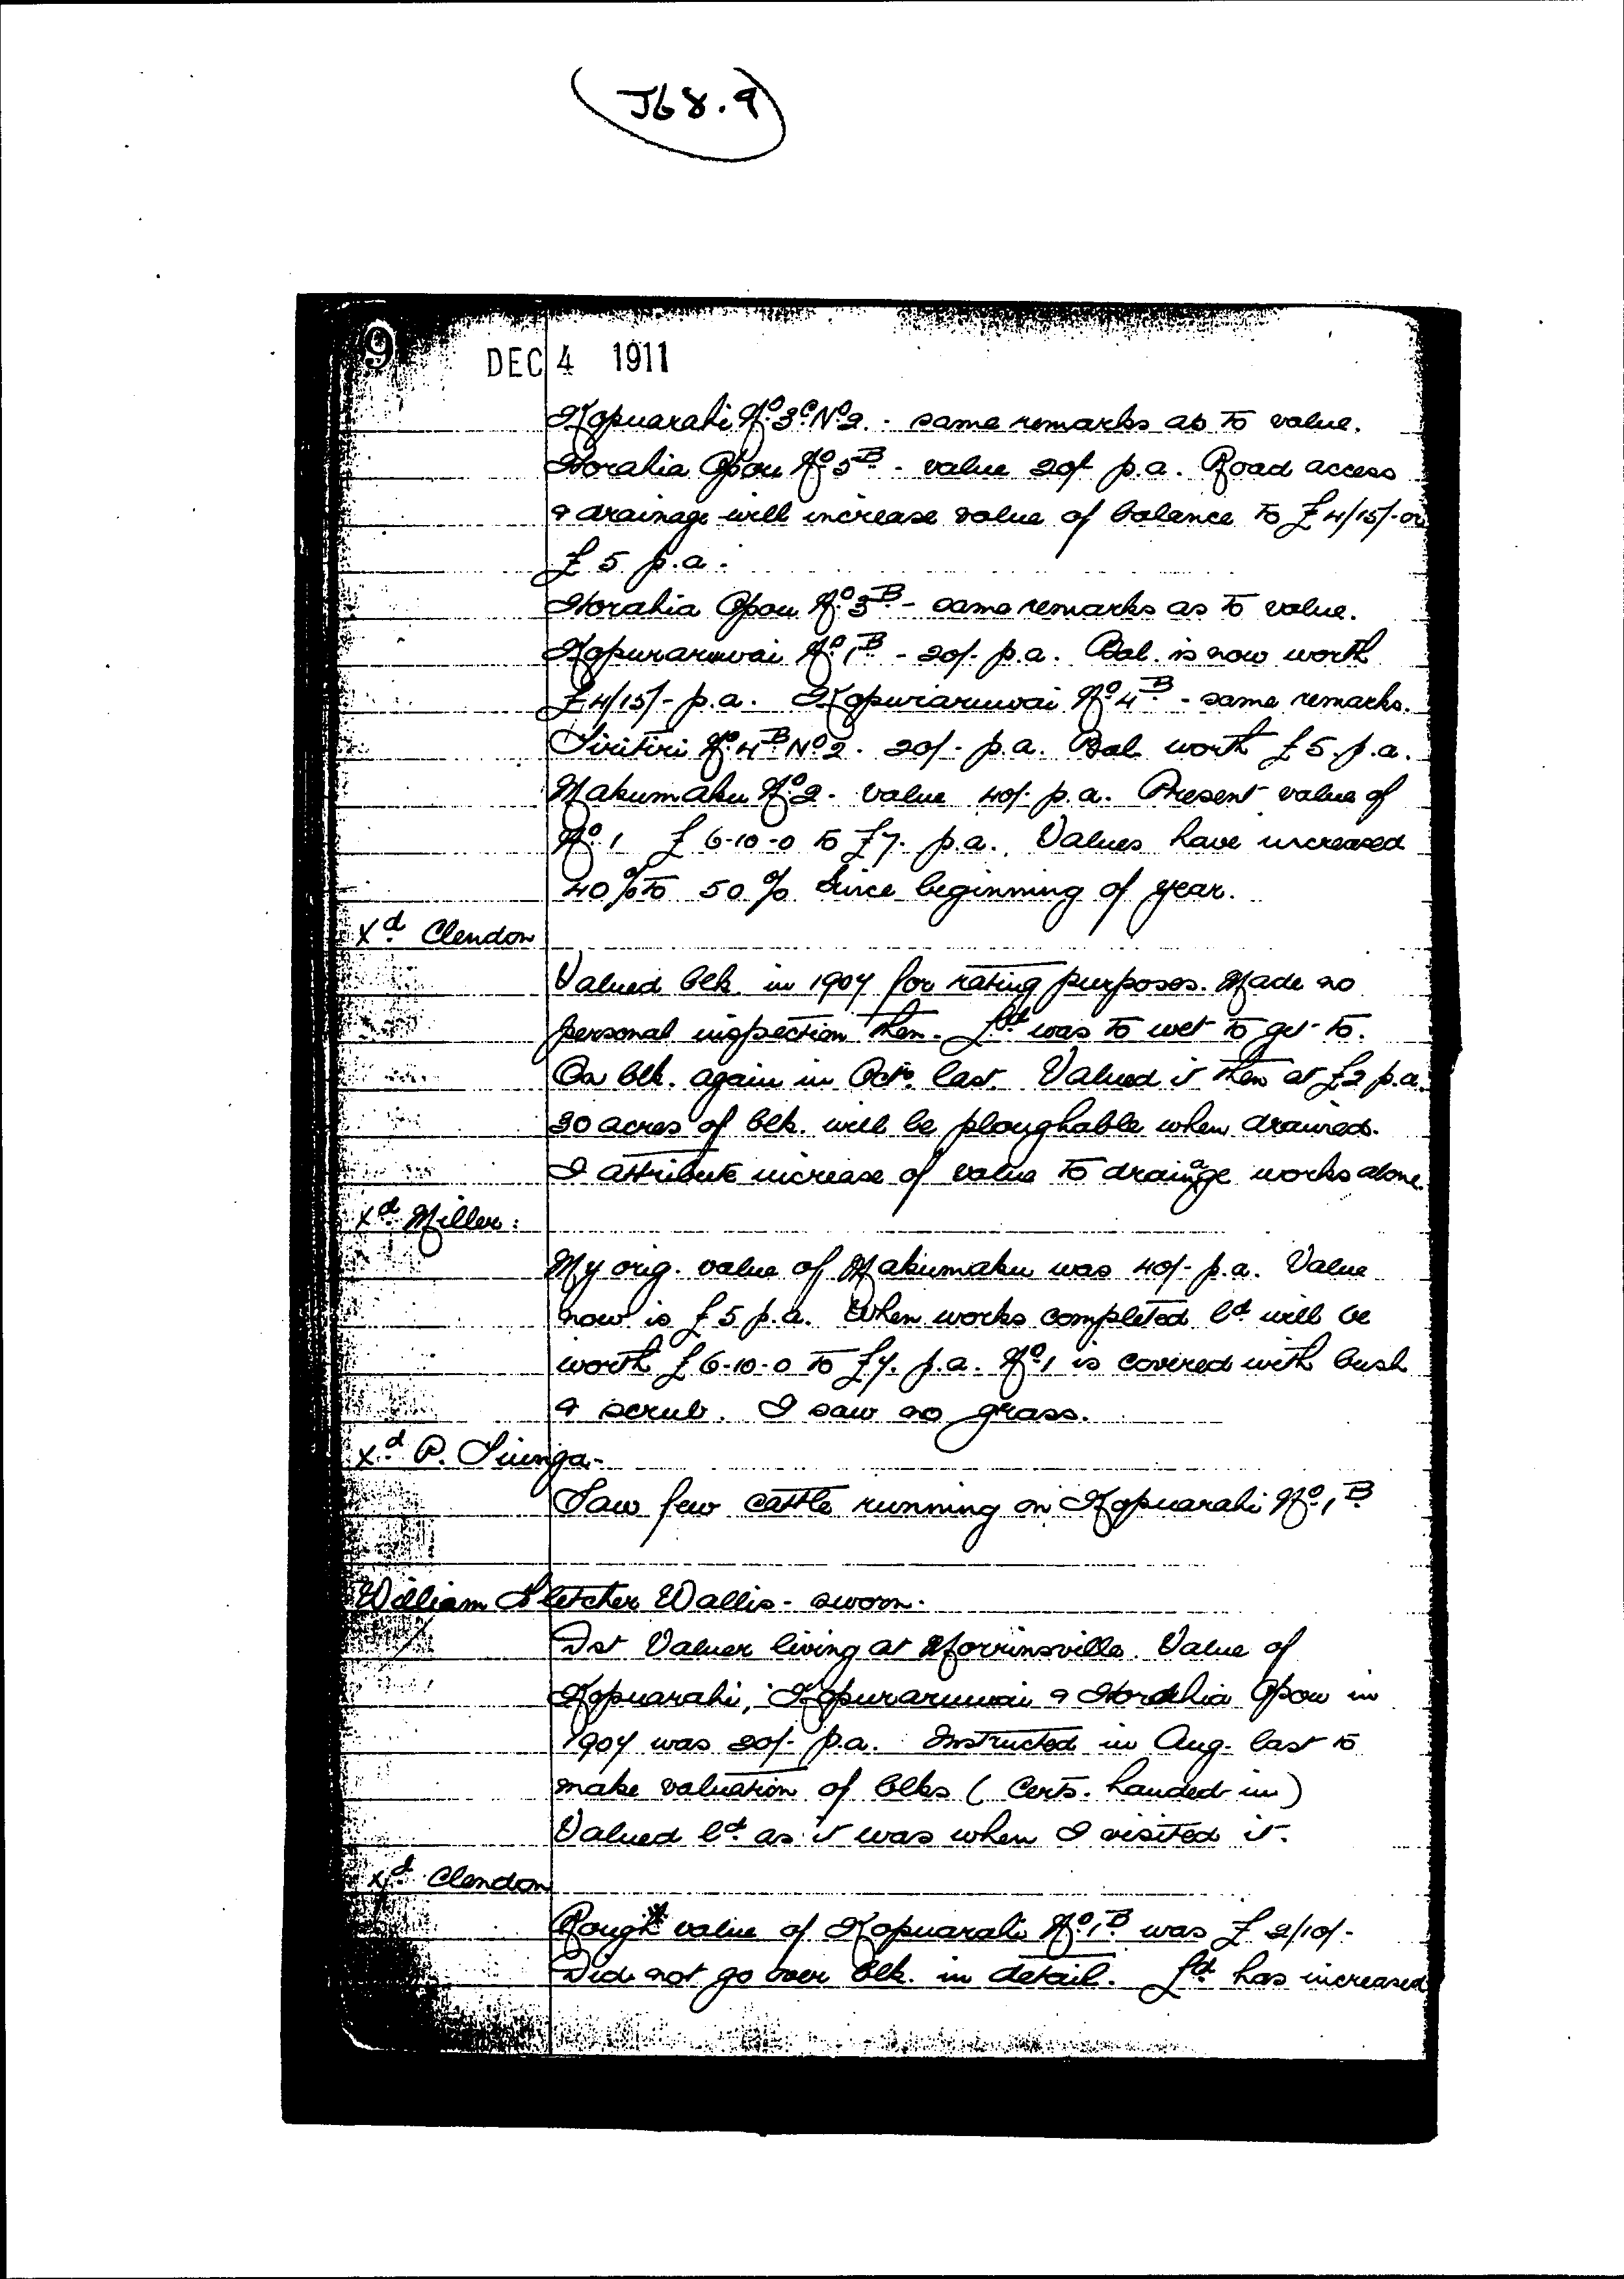 J68.9
9
DEC 4 1911
Kopuarahi No. 3C No 2. - same remarks as to value.
Horahia Opou No. 5B. - value 20/- p.a. Road access
& drainage will increase value of balance to £4/15/- or
£5 p.a.
Horahia Opou No. 3B. - same remarks as to value.
Kopuraruwai No. 1B. - 20/- p.a. Bal. is now worth
£4/15/- p.a. Kopuraruwai No. 4B. - same remarks.
Tiritiri No. 4B. No 2. 20/- p.a. Bal worth £5. p.a.
Makumaku No. 2. value 40/- p.a. Present value of
No. 1 £6-10-0 to £7. p.a. Values have increased
40% to 50% since beginning of year.
Xd. Clendon
Valued blk. in 1907 for rating purposes. Made no
personal inspection then. Ld. was to wet to get to.
On blk. again in Octo. last. Valued it then at £2 p.a.
30 acres of blk. will be ploughable when drained.
I attribute increase of value to drainage works alone.
Xd. Miller:
My orig. value of Makumaku was 40/- p.a. Value
now is £5 p.a. When works completed ld. will be
worth £6-10-0 to £7. p.a. No. 1 is covered with bush
& scrub. I saw no grass.
Xd. P. Tiunga-
Saw few cattle running on Kopuarahi No. 1B.
William Fletcher Wallis - sworn.
Dst Valuer living at Morrinsville. Value of
Kopuarahi, Kopuraruwai & Horahia Opou in
1907 was 20/- p.a. Instructed in Aug. last to
make valuation of blks (Certs. handed in)
Valued ld. as it was when I visited it.
Xd. Clendon
Rough value of Kopuarahi No. 1B. was £2/10/-
Did not go over blk. in detail. Ld. has increased